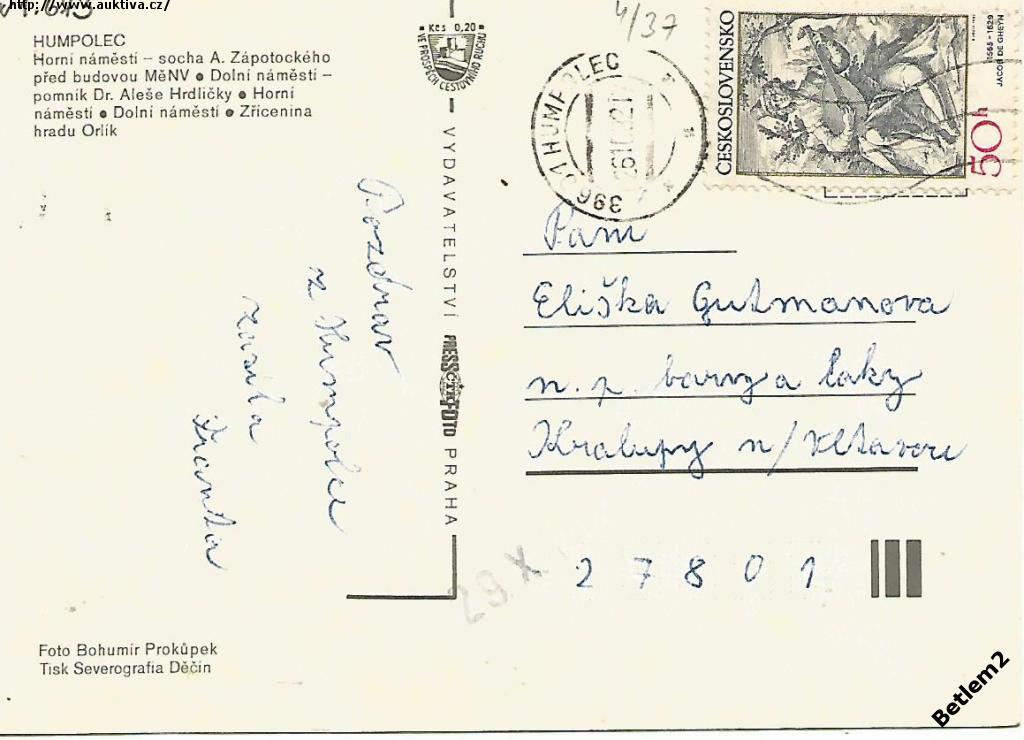 http://www.auktiva.cz/
4/37
HUMPOLEC
Horní náměstí – socha A. Zápotockého
před budovou MěNV ● Dolní náměstí –
pomník Dr. Aleše Hrdličky ● Horní
náměstí ● Dolní náměstí ● Zřícenina
hradu Orlík
Kčs 0,20
VE PROSPĚCH CESTOVNÍHO RUCHU
VYDAVATELSTVÍ PRESSFOTO PRAHA
ČTK
396 01 HUMPOLEC
ČESKOSLOVENSKO
50h
1565 - 1629
JACOB DE GHEYN
Pozdrav
z Humpolce
zasílá
Franta
Paní
Eliška Gutmanova
n.p. barvy a laky
Kralupy n/Vltavou
27801
Foto Bohumír Prokůpek
Tisk Severografia Děčín
Betlem2